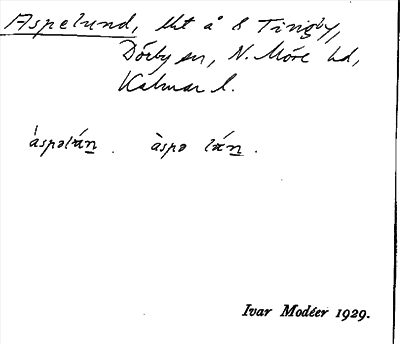 Aspelund, lht å 8 Tingby,
Dörby sn, N. Möre hd,
Kalmar l.
áspəlán. àspə lán.
Ivar Modéer 1929.